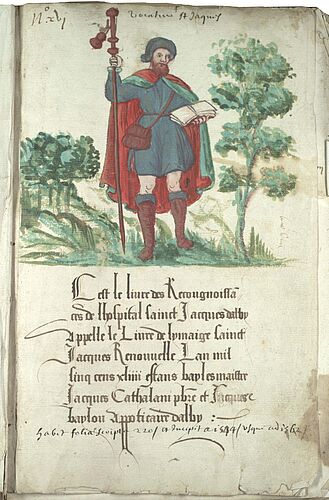 No xvj
St Jaques
Cest le liure des Recougnoissā
ces de lhospital sainct Jacques dalby
Appelle le Liure de lymaige sainct
Jacques Renouuelle Lan mil
sinq cens xliiii estans bayles maistre
Jacques Cathalani pbre et Jacques
baylou Appoticaire dalby :
habet folia scripta 220 / et Incepit a 1544 / usqu ad